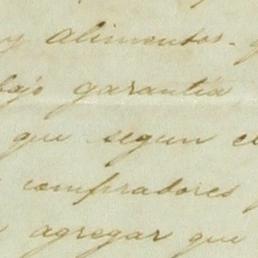 y alimentos.
bajo garantia
que segun el
compradores
agregar que